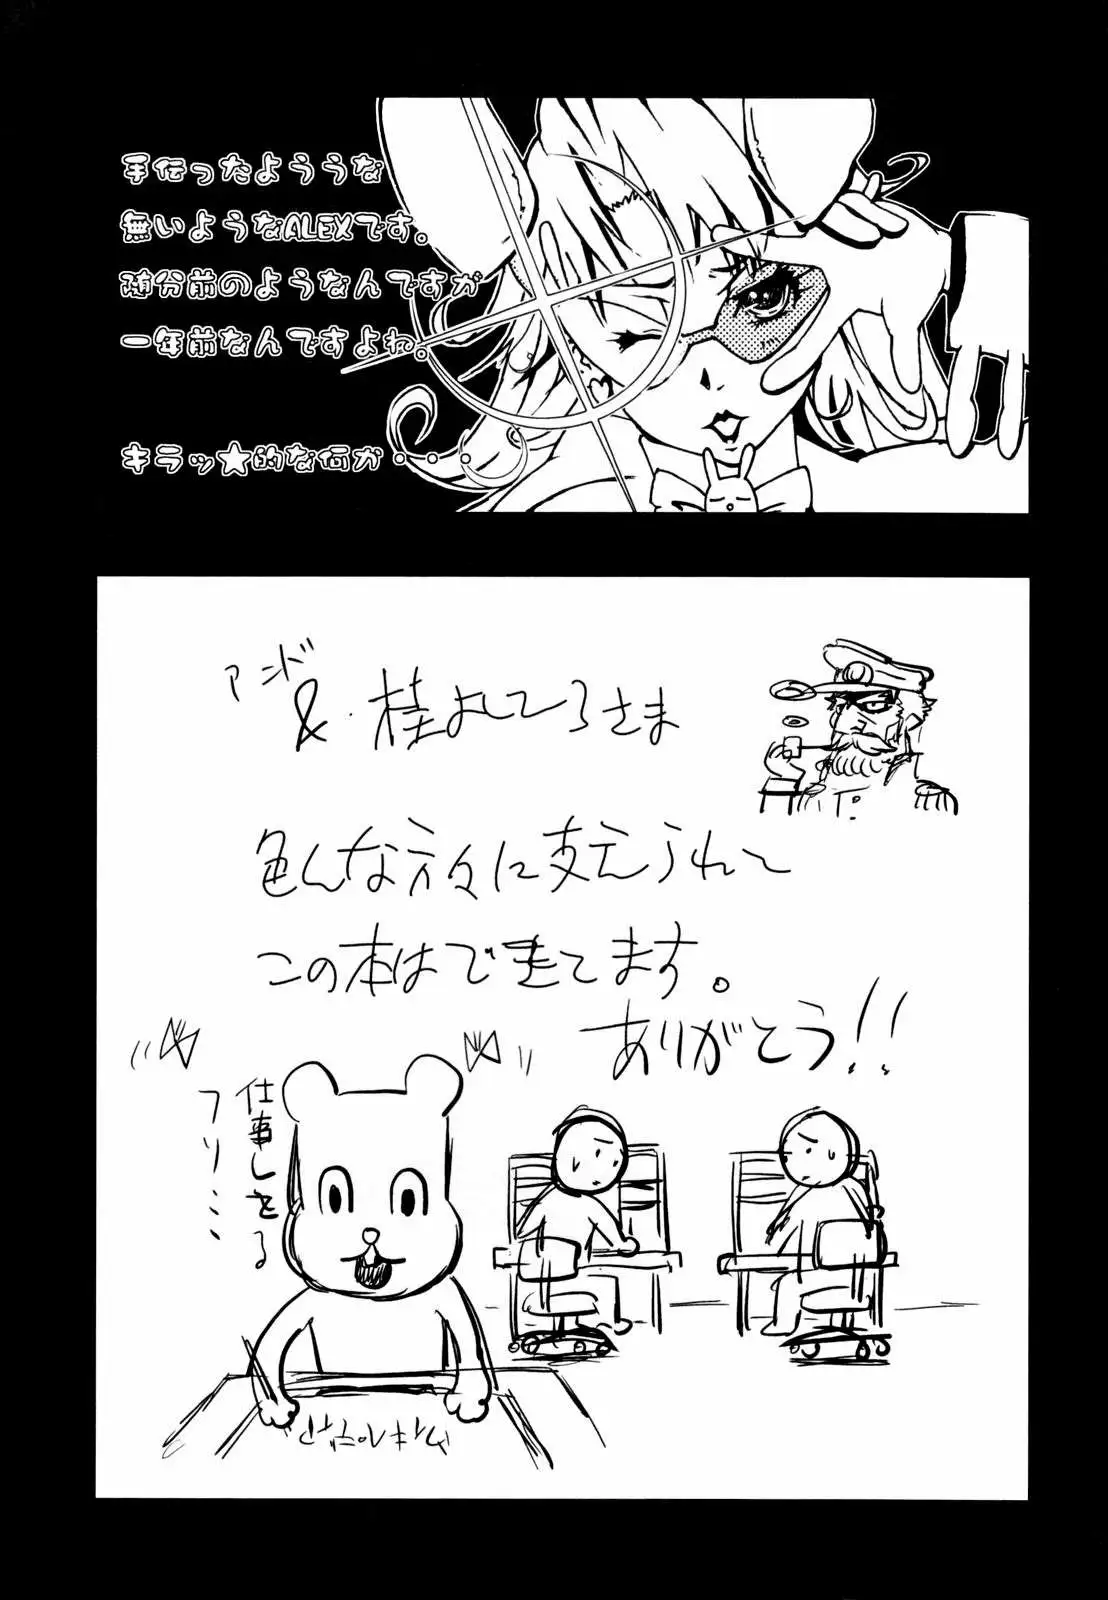 手伝ったよううな
無いようなALEXです。
随分前のようなんですが
一年前なんですよね。
キラッ★的な何か・・・
アンド
&桂よしひろさま
色んな方々に支えられて
この本はできてます。
ありがとう!!
仕事してる
フリミミ